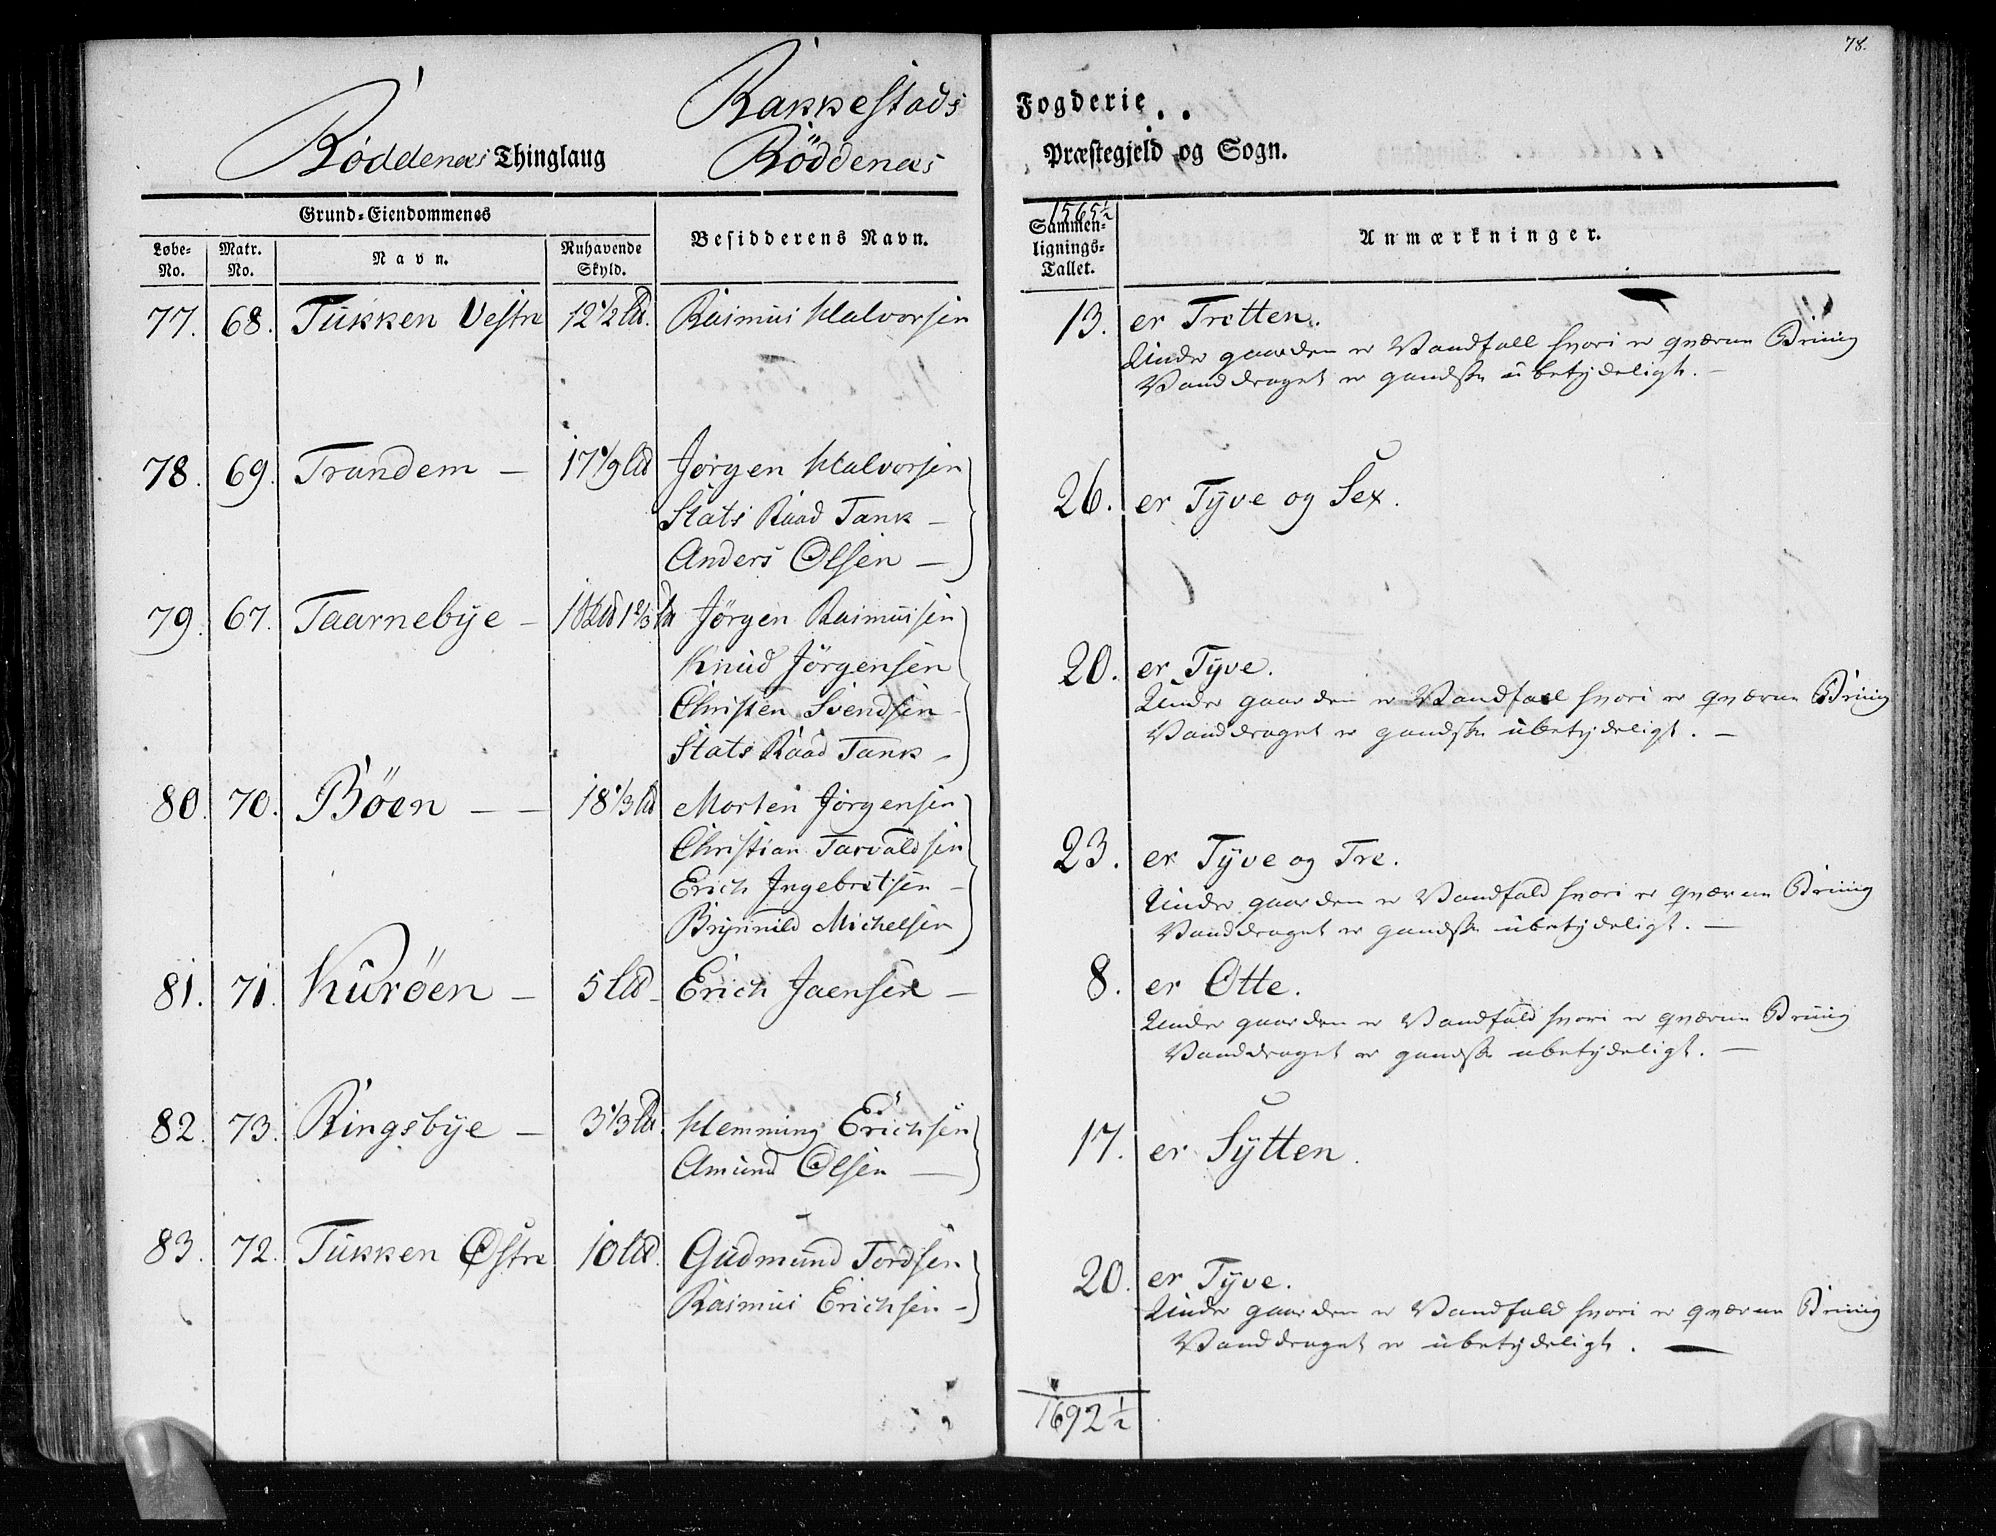 78.
Rakkestads Fogderie.
Röddenæs Thinglaug Röddenæs Præstegjeld og Sogn.
Grund-Eiendommenes
Løbe-No. Matr. No. Navn. Nuhavende Skyld. Besidderens Navn. Sammenlignings-Tallet. Anmærkninger.
1565½
77. 68. Tukken Vestre 12½ Ld. Rasmus Halvorsen 13. er Tretten.
Under gaarden er Vandfall hvori er qværne Brüüg
Vanddraget er gandske übetydeligt. –
78. 69. Trandem – 17 1/9 Ld Jørgen Halvorsen 26. er Tyve og Sex.
Stats Raad Tank –
Anders Olsen –
79. 67. Taarnebÿe – Jörgen Rasmussen 20. er Tÿve.
Knud Jörgensen Under gaarden er Vandfall hvori er qværne Brüüg
Christen Svendsen – Vanddraget er gandske übetydeligt. –
Stats Raad Tank –
80. 70. Böen – – 18⅓ Ld Morten Jörgensen 23. er Tÿve og Tre.
Christian Tarvaldsen Under gaarden er Vandfald hvori er qværne Brüüg
Erich Ingebretsen – Vanddraget er gandske übetydeligt. –
Brynnild Michelsen
81. 71. Kuröen – 5 Ld – Erich Jaensen – 8. er Otte.
Under gaarden er Vandfald hvori er qværne Brüüg
Vanddraget er gandske ubetydeligt. –
82. 73. Ringsbÿe – 3⅓ Ld. Hemming Erichsen 17. er Sÿtten.
Amund Olsen –
83. 72. Tukken Østre 10 Ld. Gudmund Tordsen 20. er Tÿve.
Rasmus Erichsen – Under gaarden er Vandfald hvori er qværne Brüüg
Vanddraget er übetydeligt. –
1692½